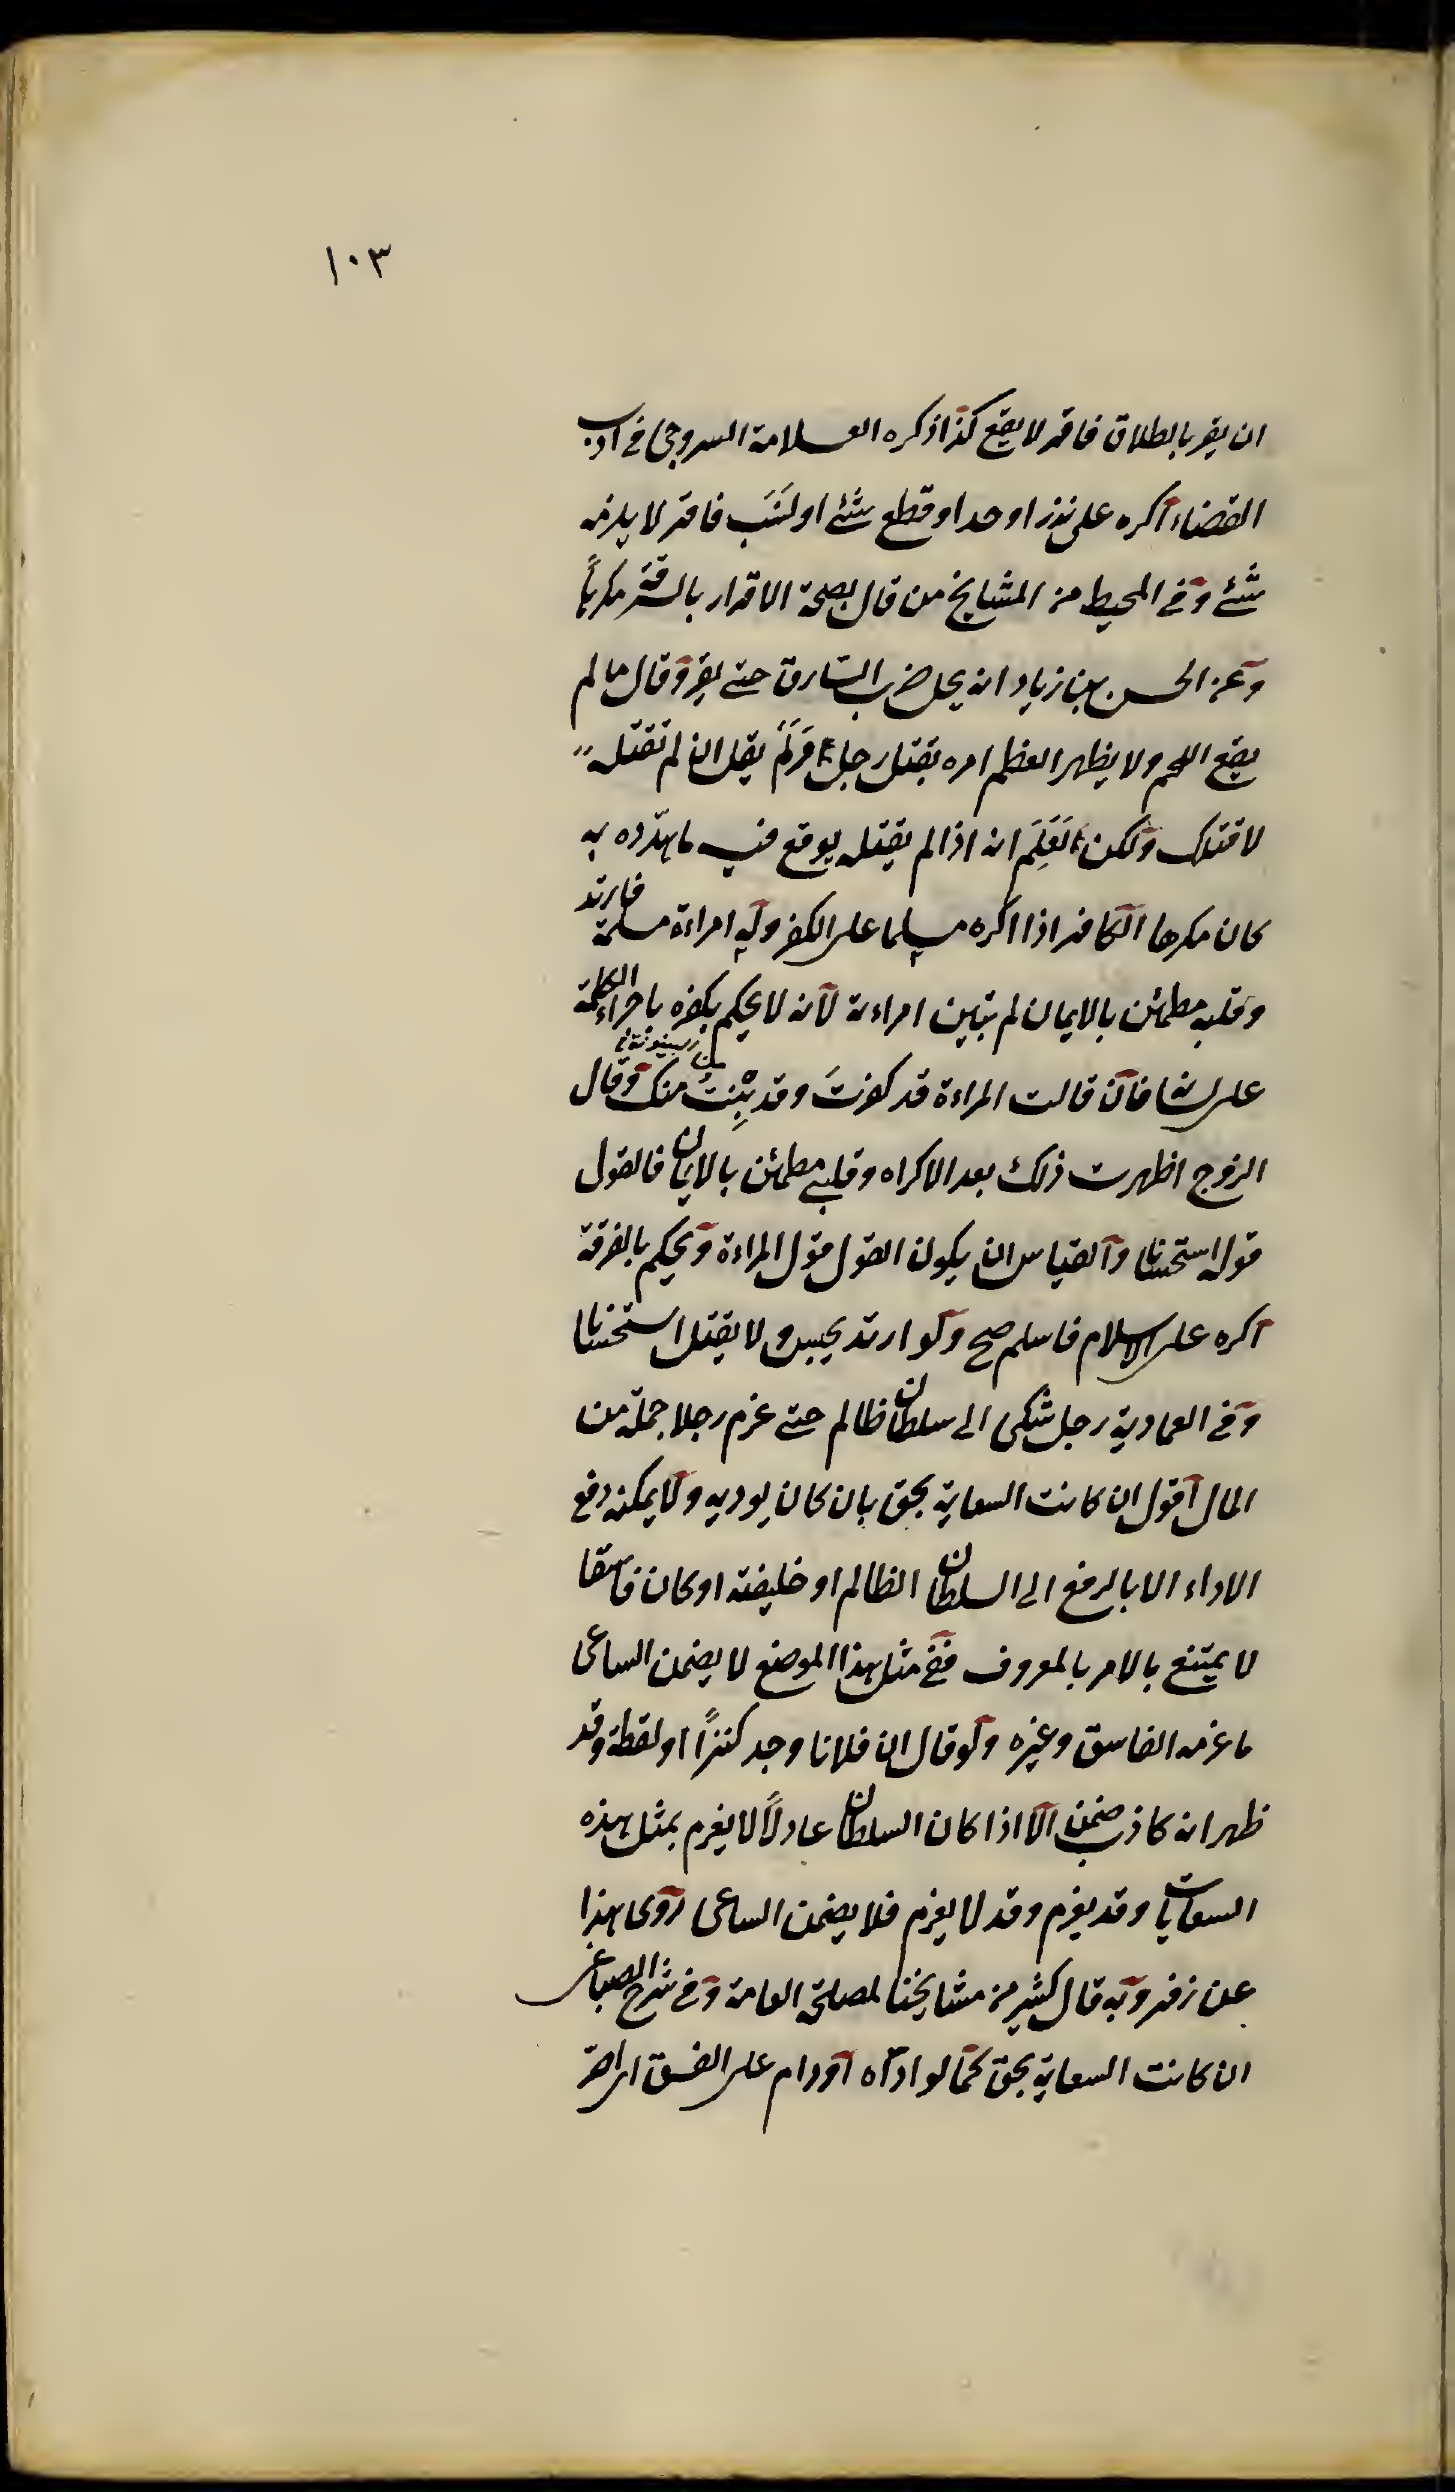 ١٠٣
ان يقر بالطلاق فاقر لا يقع كذا ذكره العلامة السروجى فى ادب
القضاء اكره على نذر او حد او قطع شئ او نسب فاقر لا يلزمه
شئ وفى المحيط من المشايخ من قال بصحة الاقرار بالسرقة مكرها
وعن الحسن بن زياد انه يحل ضرب السارق حتى يقر وقال ما لم
يقع اللحم ولا يظهر العظم امره بقتل رجل ولم يقل ان لم تقتله
لاقتلك ولكن يعلم انه اذا لم يقتله يوقع فيه ما هدده به
كان مكرها الكافر اذا اكره مسلما على الكفر وله امراءة مسلمة فارتد
وقلبه مطمئن بالايمان لم تبين امراءته لانه لا يحكم بكفره باجراء الكلمة
على لسانه فان قالت المراءة قد كفرت وقد بنت منك وقال
الزوج اظهرت ذلك بعد الاكراه وقلبى مطمئن بالايمان فالقول
قوله استحسانا والقياس ان يكون القول قول المراءة ويحكم بالفرقة
اكره على الاسلام فاسلم صح ولو ارتد يحبس ولا يقتل استحسانا
وفى العمادية رجل شكى الى سلطان ظالم حتى غرم رجلا جملة من
المال اقول ان كانت السعاية بحق بان كان يوديه ولا يمكنه دفع
الاداء الا بالرفع الى السلطان الظالم او خليفته او كان فاسقا
لا يمتنع بالامر بالمعروف ففى مثل هذا الموضع لا يضمن الساعى
ما غرمه الفاسق وغيره ولو قال ان فلانا وجد كنزاً او لقطة وقد
ظهر انه كاذب ضمن الا اذا كان السلطان عادلاً لا يغرم بمثل هذه
السعايات وقد يغرم وقد لا يغرم فلا يضمن الساعى روى هذا
عن زفر وبه قال كثير من مشايخنا لمصلحة العامة وفى شرح الصباغى
ان كانت السعاية بحق كما لو اداه او دام على الفسق اى اصر